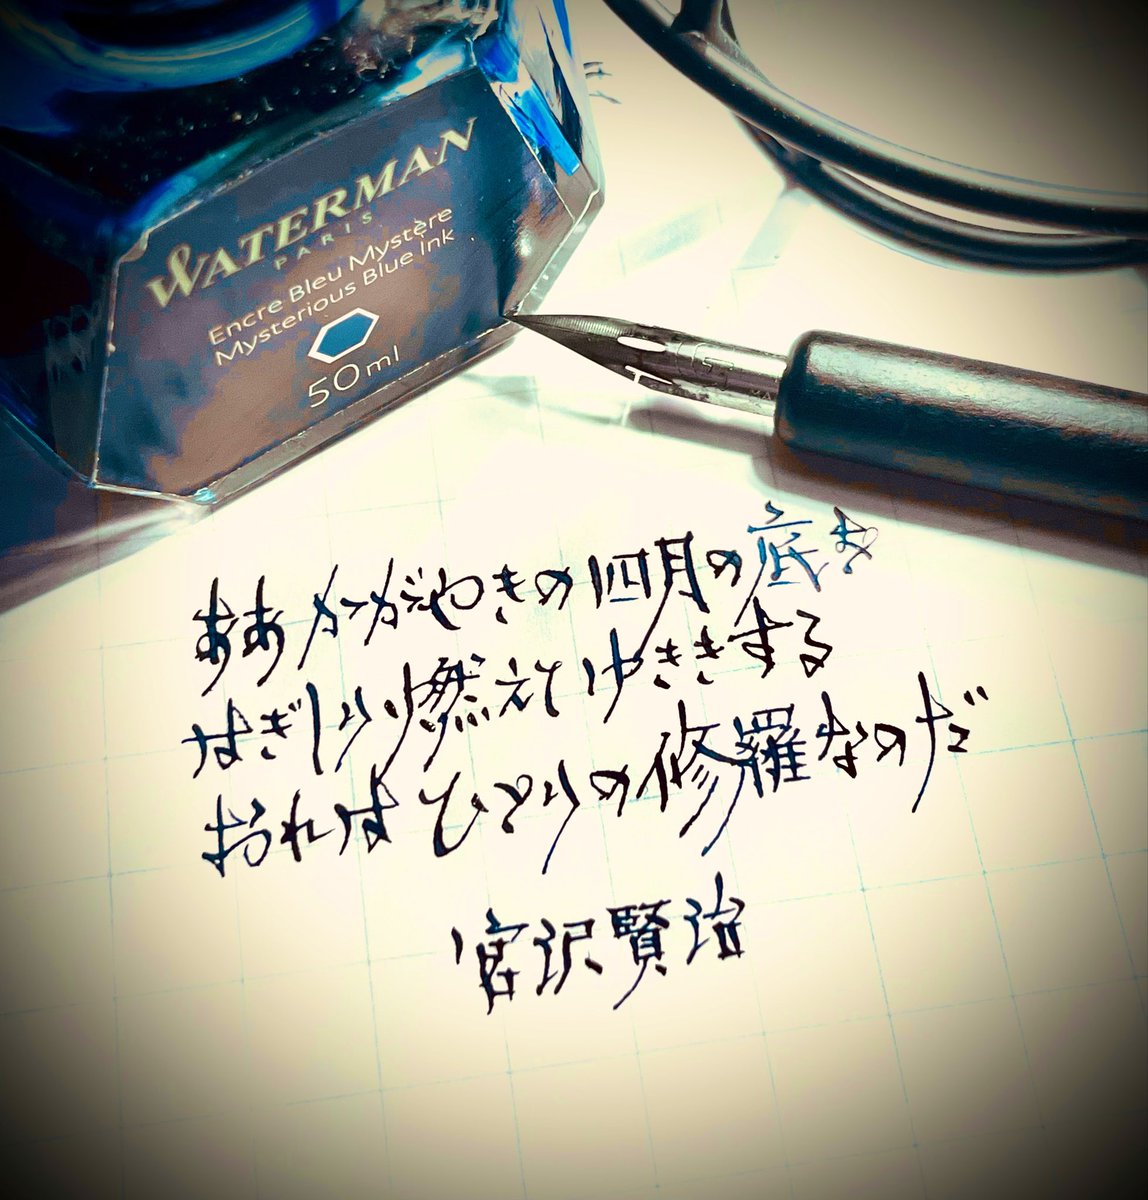 WATERMAN
PARIS
Encre Bleu Mystère
Mysterious Blue Ink
50ml
ああかがやきの四月の底を
はぎしり燃えてゆききする
おれはひとりの修羅なのだ
宮沢賢治